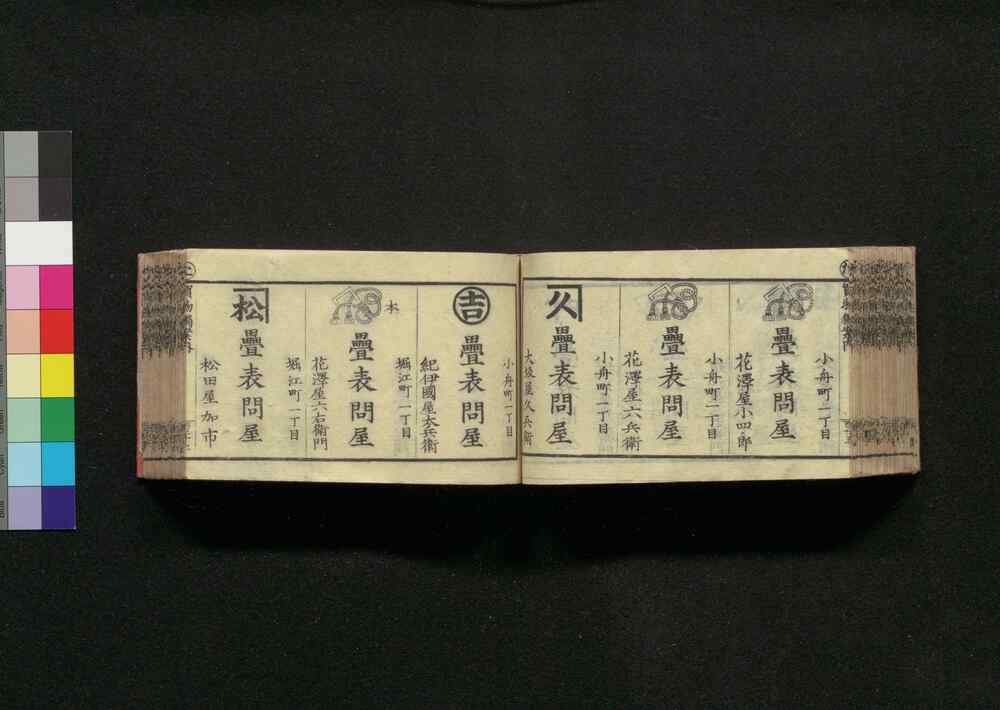 疊表問屋
小舟町一丁目
花澤屋小四郎
疊表問屋
小舟町一丁目
花澤屋六兵衛
久
疊表問屋
小舟町一丁目
大坂屋久兵衛
吉
疊表問屋
小舟町一丁目
紀伊國屋太兵衛
本
疊表問屋
堀江町一丁目
花澤屋六右衛門
松
疊表問屋
堀江町一丁目
松田屋加市